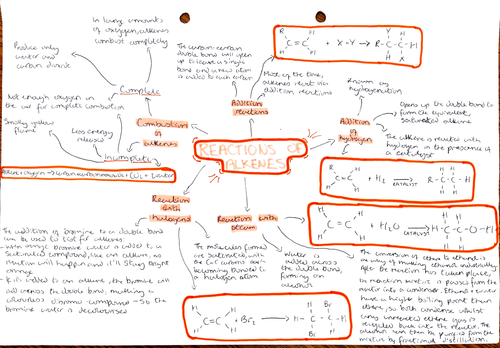 In large amounts
of oxygen, alkenes
combust completely
Produce only
water and
carbon dioxide
Complete
Not enough oxygen in
the air for complete combustion
Smoky yellow
flame
Less energy
released
Incomplete
Combustion of
alkenes
The carbon-carbon
double bond will open
up to leave a single
bond and a new atom
is added to each carbon
Most of the time,
alkenes react via
addition reactions
Addition
reactions
+ X-Y
REACTIONS OF
ALKENES
Known as
hydrogenation
Opens up the double bond to
form the equivalent,
saturated alkane
Addition
of
hydrogen
The alkene is reacted with
hydrogen in the presence of
a catalyst
+ H2
CATALYST
Reaction
with
halogens
The addition of bromine to a double bond
can be used to test for alkenes:
orange bromine water is added to a
saturated compound, like an alkane, no
reaction will happen and it'll stay bright
orange
is added to an alkene, the bromine will
add across the double bond, making a
colourless dibromo compound - so the
bromine water is decolourised
The molecules formed
are saturated, with
the C=C carbons
becoming bonded to
a halogen atom
+ Br2
Reaction with
steam
Water is
added across
the double
bond,
forming an
alcohol
+ H2O
CATALYST
The conversion of ethene to ethanol is
one way of making ethanol industrially.
After the reaction has taken place,
the reaction mixture is passed from the
reactor into a condenser. Ethanol + water
have a higher boiling point than
ethene, so both condense whilst
any unreacted ethene gas is
recycled back into the reactor. The
alcohol can then be purified from the
mixture by fractional distillation.